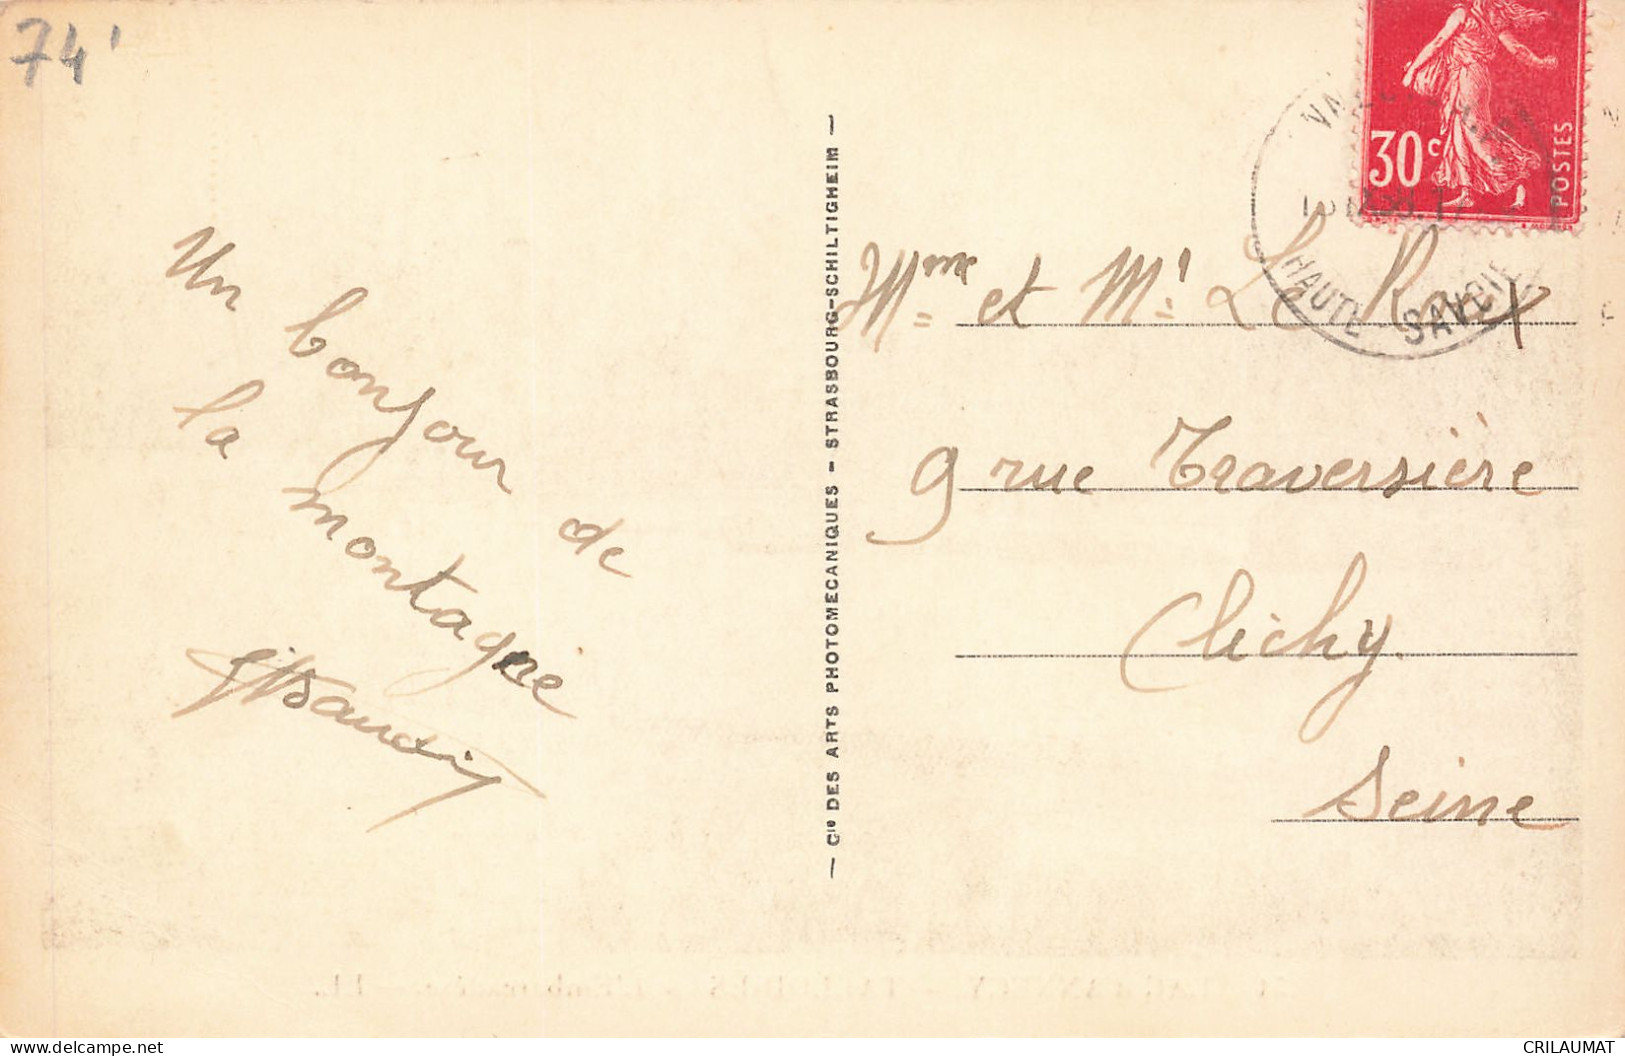 74'
30c
POSTES
HAUTE-SAVOIE
Un bonjour de
la montagne
Mme et Mr. Le Roux
9 rue Traversière
Clichy.
Seine
— Cie DES ARTS PHOTOMECANIQUES - STRASBOURG-SCHILTIGHEIM —
CRILAUMAT